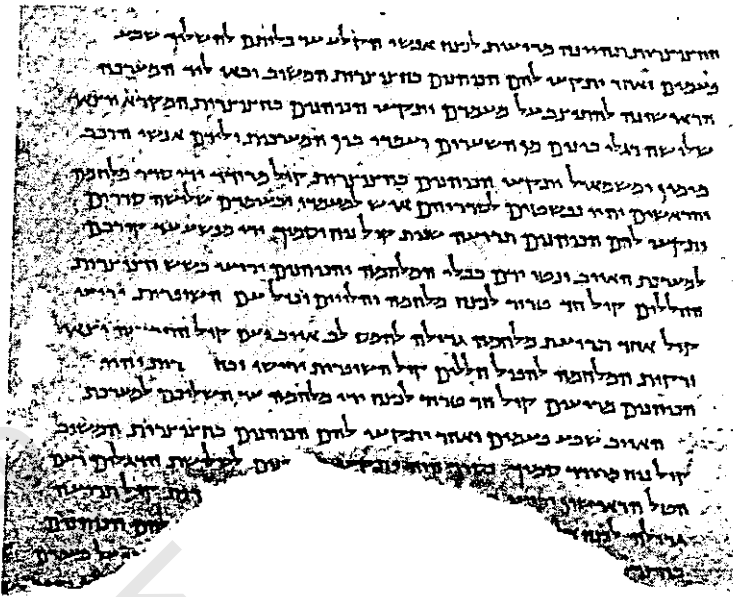 החצוצרות תהיינה מריעות לנצח אנשי הקלע עד כלותם להשליך שבע
פעמים ואחר יתקעו להם הכוהנים בחצוצרות המשוב ובאו ליד המערכה
הראישונה להתיצב על מעמדם ותקעו הכוהנים בחצוצרות המקרא ויצאו
שלושה דגלי בינים מן השערים ועמדו בין המערכות ולידם אנשי הרכב
מימין ומשמאול ותקעו הכוהנים בחצוצרות קול מרודד ידי סדר מלחמה
והראשים יהיו נפשטים לסדריהם איש למעמדו ובעומדם שלושה סדרים
ותקעו להם הכוהנים תרועה שנית קול נוח וסמוך ידי מפשע עד קורבם
למערכת האויב ונטו ידם בכלי המלחמה והכוהנים יריעו בשש חצוצרות
החללים קול חד טרוד לנצח מלחמה והלויים וכול עם השופרות יריעו
קול אחד תרועת מלחמה גדולה להמס לב אויב ועם קול התרועה יצאו
זרקות המלחמה להפיל חללים קול השופרות יחישו ובח רות יהיו
הכוהנים מריעים קול חד טרוד לנצח ידי מלחמה עד השליכם למערכת
האויב שבע פעמים ואחר יתקעו להם הכוהנים בחצוצרות המשוב
קול נוח מרודד סמוך כסרך הזה יתקעו נים לשלושת הדגלים ועם
הטל הראישון יריעו רות קול תרועה
גדולה לנצח הם הכוהנים
על מעמדם